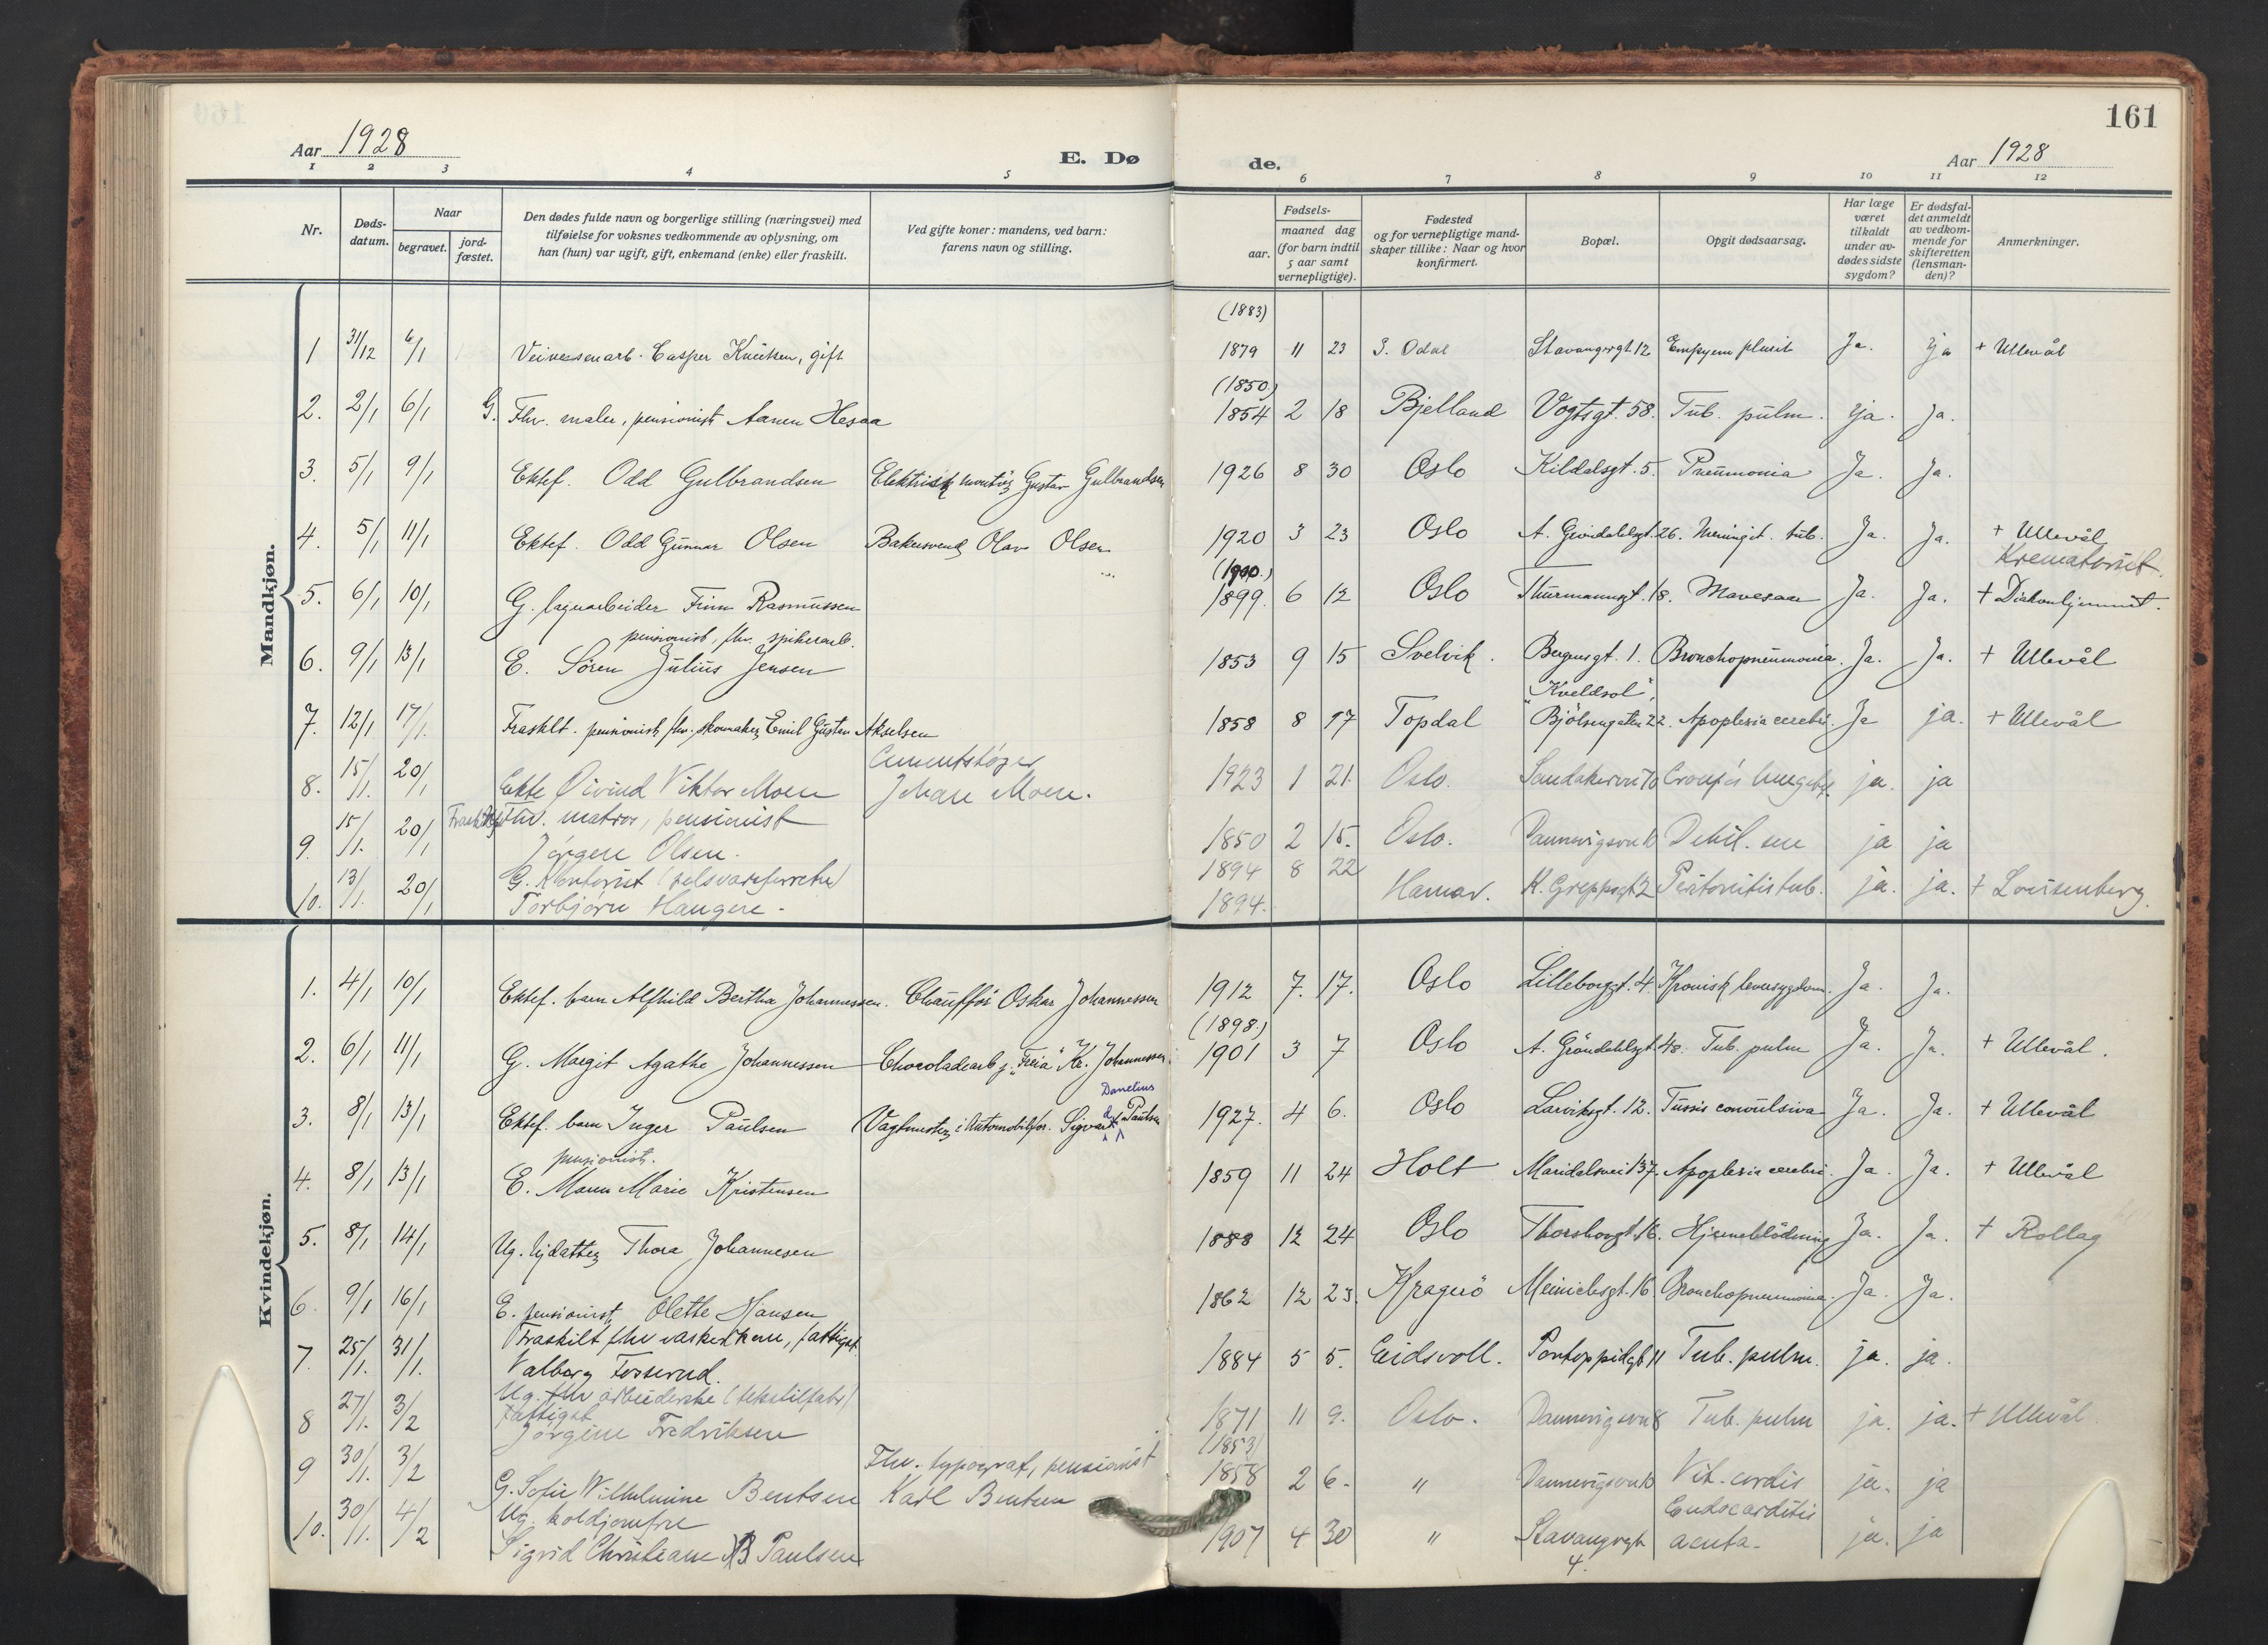 161
Aar 1928
E. Dø de.
Aar 1928
1 2 3 4 5 6 7 8 9 10 11 12
Nr.
Døds-
datum.
Naar
begravet.
jord-
fæstet.
Den dødes fulde navn og borgerlige stilling (næringsvei) med
tilføielse for voksnes vedkommende av oplysning, om
han (hun) var ugift, gift, enkemand (enke) eller fraskilt.
Ved gifte koner: mandens, ved barn:
farens navn og stilling.
Fødsels-
aar.
maaned dag
(for barn indtil
5 aar samt
vernepligtige).
Fødested
og for vernepligtige mand-
skaper tillike: Naar og hvor
konfirmert.
Bopæl.
Opgit dødsaarsag.
Har læge
været
tilkaldt
under av-
dødes sidste
sygdom?
Er dødsfal-
det anmeldt
av vedkom-
mende for
skifteretten
(lensman-
den)?
Anmerkninger.
Mandkjøn.
(1883)
1 31/12 6/1 Veivesenarb. Casper Knutsen, gift 1879 11 23 S. Odal Stavangergt. 12 Empyem Ja. ja + Ullevål
(1850.)
2. 2/1 6/1 G. Fhv. maler, pensionist Aanen Hesaa 1854 2 18 Bjelland Vogtsgt. 58. Tub. pulm. ja. Ja.
3. 5/1 9/1 Ektef. Odd Gulbrandsen Elektrisk montör Gustav Gulbrandsen 1926 8 30 Oslo Kildalsgt. 5. Pneumonia Ja. Ja.
4. 5/1 11/1 Ektef. Odd Gunnar Olsen Bakersvend Olav Olsen 1920 3 23 Oslo 26. Meningit. tub. Ja. Ja. + Ullevål
Krematoriet.
(1900.)
5. 6/1 10/1 G. lagerarbeider Finn Rasmussen 1899. 6 12 Oslo Thurmannsgt. 18. Mavesaar Ja. Ja. + Diakonhjemmet.
pensionist, fhv. spikerarb.
6. 9/1 13/1 E. Sören Julius Jensen 1853 9 15 Svelvik. Bergensgt. 1. Bronchopneumonia. Ja. Ja. + Ullevål
"Kveldsol",
7. 12/1 17/1. Fraskilt. pensionist, fhv. skomaker Emil Gustav Akselsen 1858 8 17 Topdal Bjölsengaten 22. Apoplexia cerebri. Ja ja. + Ullevål
Cementstøper
8. 15/1. 20/1 Ekte Øivind Viktor Moen Johan Moen. 1923 1 21. Oslo. Sandakervei 70 Croupøs ja. ja
Fhv. matros, pensionist
9. 15/1. 20/1 Jørgen Olsen. 1850 2 15. Oslo. Dannevigsvn 10 Debil. sen ja ja
G. Kontorist 1894 8 22
10. 13/1. 20/1 Torbjørn Haugen. 1894. Hamar. K. Greppsgt 2 Peritonitis tub. ja. ja. + Lovisenberg.
Kvindekjøn.
1. 4/1 10/1 Ektef. barn Alfhild Bertha Johannessen. Chaufför Oskar Johannessen 1912 7. 17. Oslo Lilleborggt. 4. Kronisk leversygdom. Ja. Ja.
(1898.)
2. 6/1 11/1 G. Margit Agathe Johannessen Chocoladearb. p. "Freia" Kr. Johannessen 1901 3 7 Oslo A. Gröndahlsgt. 48. Tub. pulm Ja. Ja. + Ullevål.
Danelius
3. 8/1 13/1 Ektef. barn Inger Paulsen Vagtmester i Automobilfor. Sigvard Paulsen 1927. 4 6. Oslo Larviksgt. 12. Tussis convulsiva Ja. Ja. + Ullevål
pensionist.
4. 8/1 13/1 E. Maren Marie Kristensen 1859 11 24 Holt Maridalsvei 137. Apoplexia cerebri. Ja. Ja. + Ullevål
5. 8/1 14/1 Ug. Thora Johannesen 1888 12 24 Oslo Thorshovgt. 16. Hjerneblödning Ja. Ja. + Rollag
6. 9/1 16/1 E. pensionist, Olette Hansen 1862 12 23. Kragerö Meinichsgt. 16 Bronchopneumonia. Ja. Ja.
Fraskilt fhv vaskerkone, fattigst.
7 25/1. 31/1. Valborg Fosserud. 1884 5 5. Eidsvoll. Pontoppidgt 11 Tub. pulm. ja. ja.
Ug. fhv arbeiderske (tekstilfabr)
fattigst
8 27/1. 3/2 Jørgine Fredriksen 1871 11 9. Oslo. Dannevigsvn 8 Tub. pulm ja. ja. + Ullevål
Fhv. typograf, pensionist (1853)
9 30/1. 3/2 G. Sofie Wilhelmine Bentsen Karl Bentsen 1858 2 6. " Dannevigsvn 10 Vit. cordis ja. ja
Ug. koldjomfru Endocarditis
10. 30/1. 4/2 Sigrid Christiane B Paulsen 1907 4 30 " Stavangergt acuta. ja. ja
4.